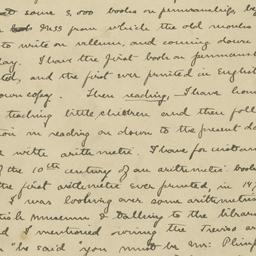 some 3,000 books on penmanship, be
Mss from which the old monks
to write on vellum, and coming down
day. I have the first book on penmansh
ed, and the first ever printed in English
own copy. Then reading, I have hom
teaching little children and then foll
ion in reading on down to the present da
with arithmetic. I have for instan
of the 10th century of an arithmetic book
the first arithmetic ever printed, in 147
I was looking over some arithmetics
tish Museum & talking to the libraria
d I mentioned owning the Treviso ar
"he said "you must be Mr. Plimp